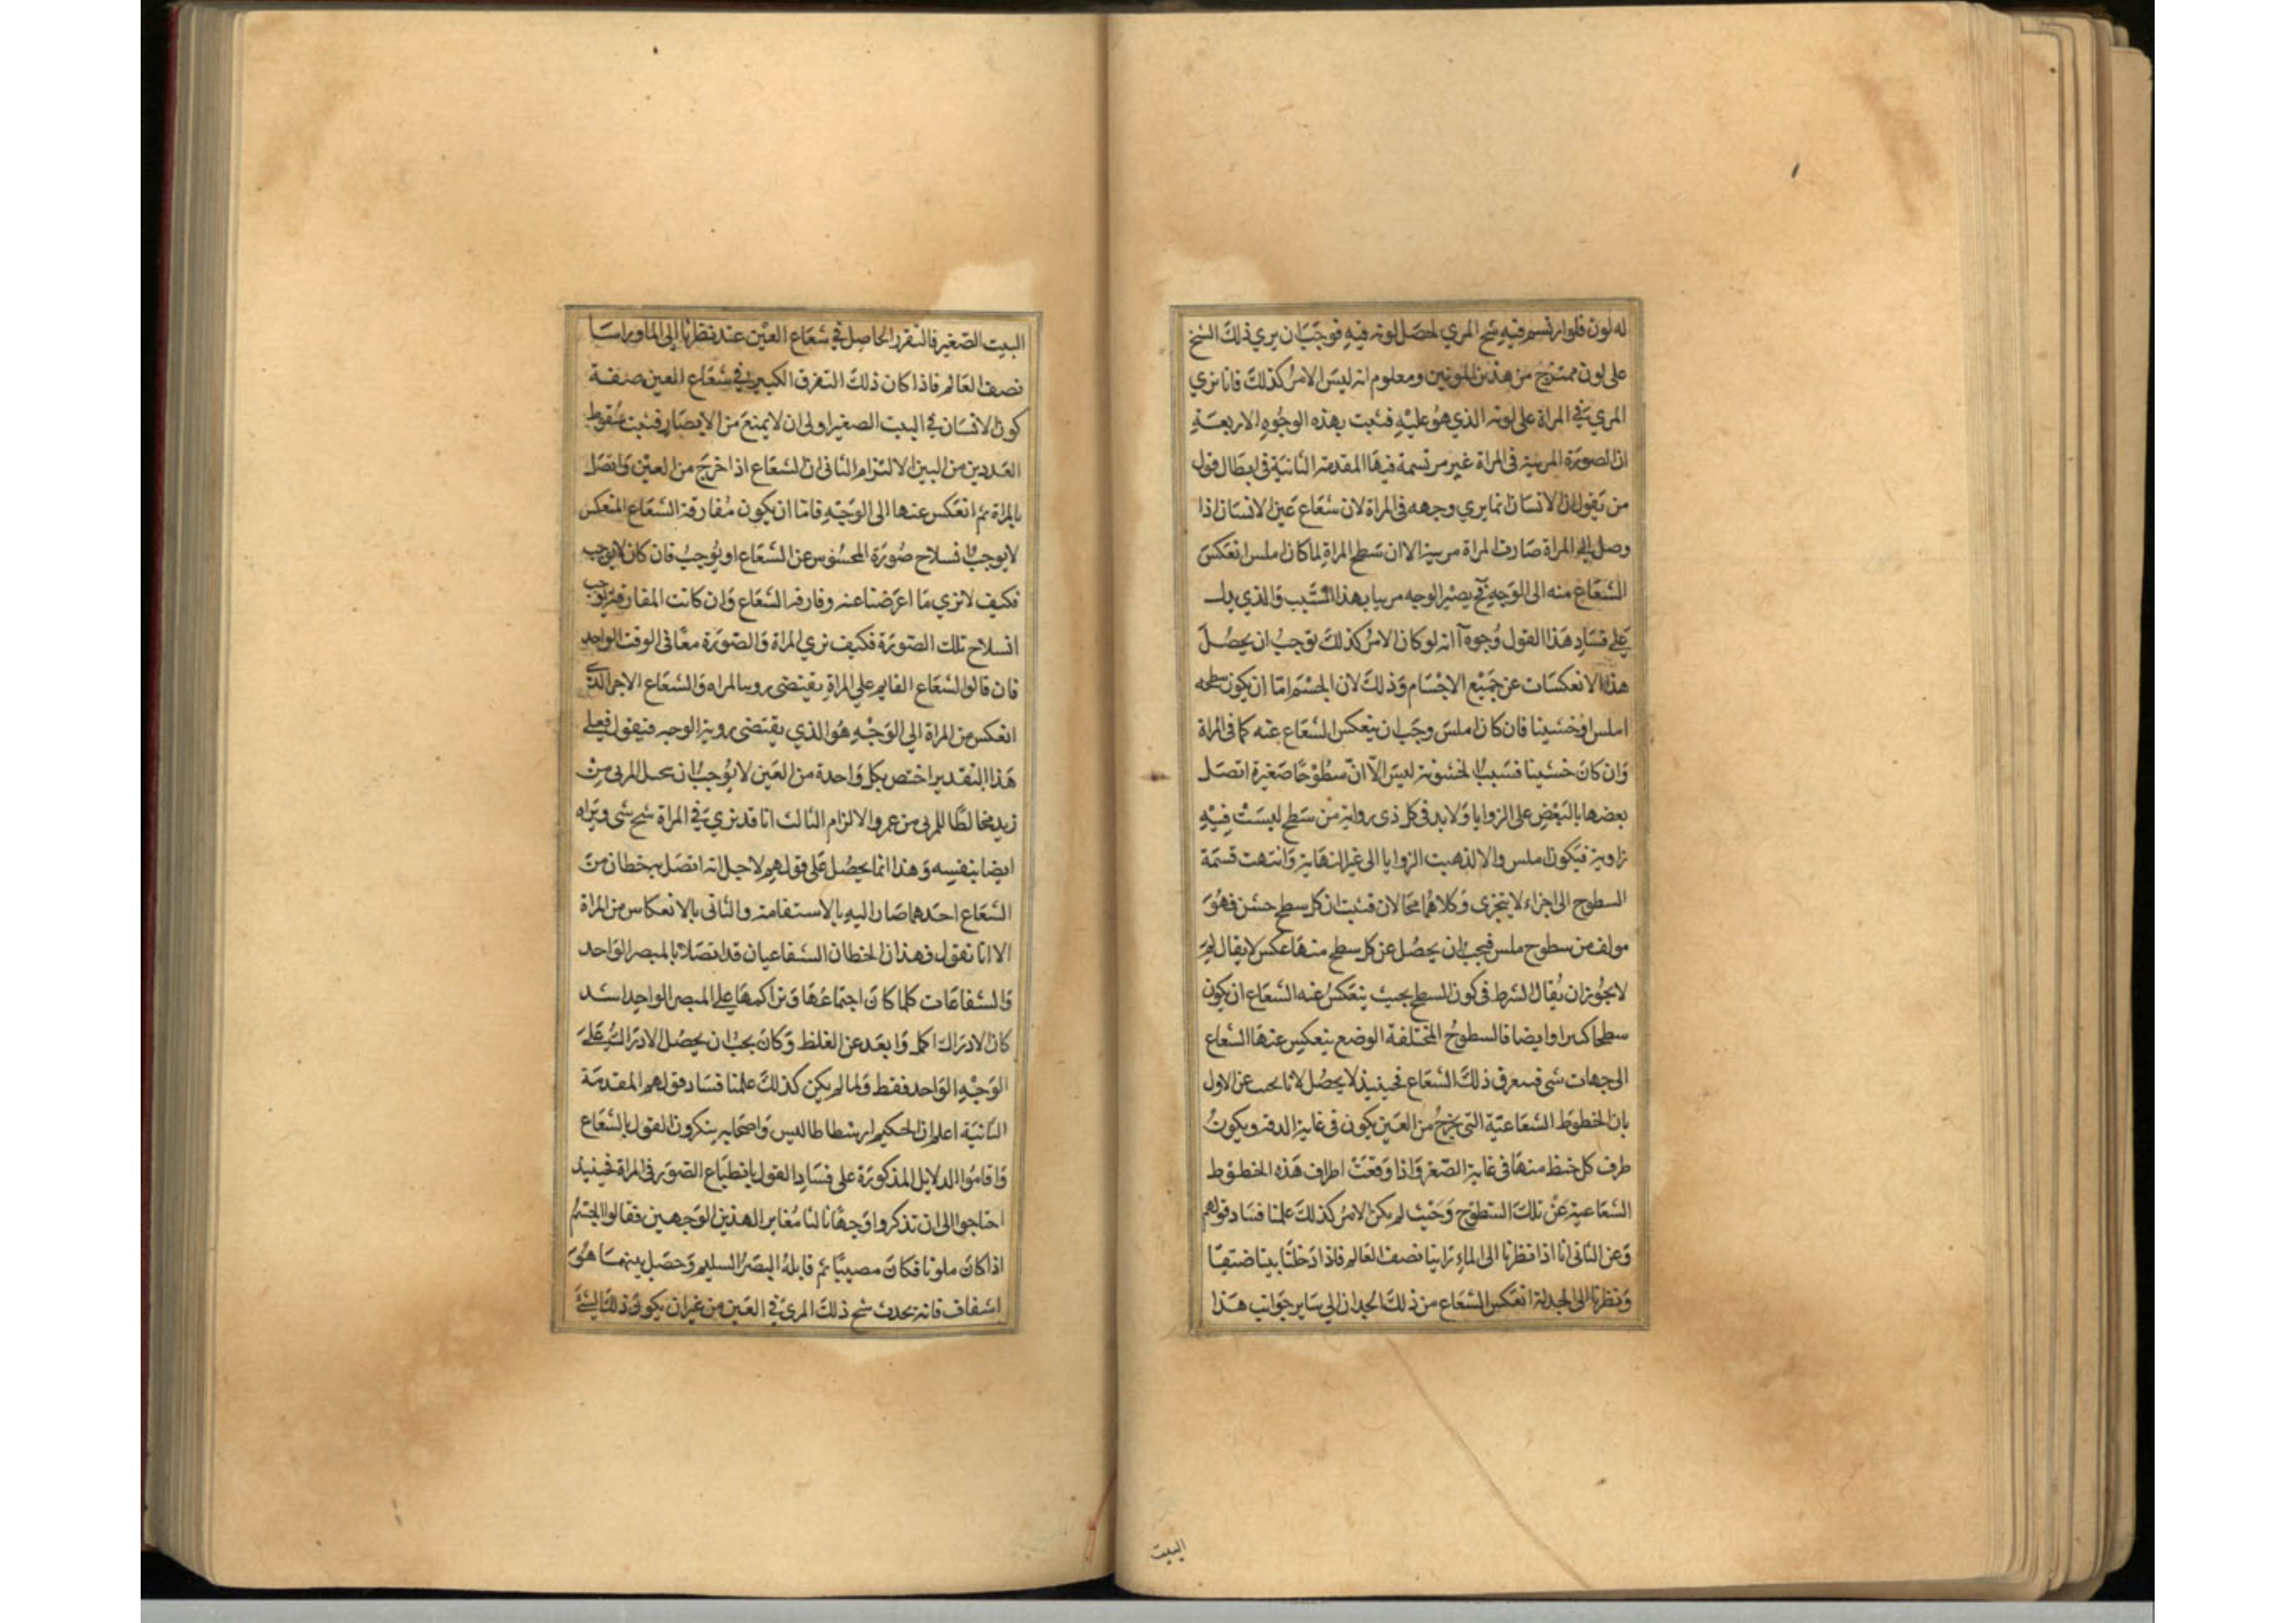 له لون فلو ارتسم فيه شبح المري لحصل لونه فيه فوجب ان يري ذلك الشبح
على لون ممتزج من هذين اللونين ومعلوم انه ليس الامر كذلك فانا نري
المري في المراة على لونه الذي هو عليه فثبت بهذه الوجوه الاربعة
ان الصورة المرسة فى المراة غير مرتسمة فيها المقدمة الثانية فى ابطال قول
من يقول ان الانسان انما يري وجهه فى المراة لان شعاع عين الانسان اذا
وصل الى المراة صارت المراة مرىىة الا ان سطح المراة لما كان املس انعكس
الشعاع منه الى الوجه فح يصير الوجه مربيا بهذا السبب والذي يدل
على فساد هذا القول وجوه آ انه لو كان الامر كذلك توجب ان يحصل
هذا الانعكسات عن جميع الاجسام وذلك لان الجسم اما ان يكون سطحه
املس او خشينا فان كان املس وجب ان ينعكس الشعاع عنه كما فى المراة
وان كان خشينا فسبب الخشونة ليس الا ان سطوحا صغيرة اتصل
بعضها بالبعض على الزوايا ولابد فى كل ذى رواية من سطح ليست فيه
زاوية فيكون املس والا لذهبت الزوايا الى غير النهاية وانتهت قسمة
السطوح الى اجزاء لا يتجزى وكلاهما محالان فثبت ان كل سطح حشن فهو
مولف من سطوح ملس فيجب ان يحصل عن كل سطح منها عكس لا يقال لم
لا يجوز ان يقال الشرط فى كون السطح بحيث ينعكس عنه الشعاع ان يكون
سطحا كبيرا وايضا فالسطوح المختلفة الوضع ينعكس عنها الشعاع
الى جهات شى فيتفرق ذلك الشعاع فحينيذ لا يحصل لانا نجب عن الاول
بان الخطوط الشعاعية التى يخرج من العين يكون فى غاية الدقة ويكون
طرف كل خط منها فى غاية الصغر واذا وقعت اطراف هذه الخطوط
الشعاعية عن تلك السطوح وحيث لم يكن الامر كذلك علمنا فساد قولهم
وعن الثانى انا اذا نظرنا الى الماء راينا نصف العالم فاذا دخلنا بيتا ضيقا
ونظرنا الى الجدلة انعكس الشعاع من ذلك الجدار الى ساير جوانب هذا
البيت
البيت الصغير فالتفرر الحاصل في شعاع العين عند نظرنا الى الما وراسا
نصف العالم فاذا كان ذلك التفرق الكبير في شعاع العين صفة
كون الانسان في البيت الصغير اولى ان لا يمنع من الابصار فثبت سقوط
العددين من البين الالتزام الثانى ان الشعاع اذا خرج من العين واتصل
بالمراة ثم انعكس عنها الى الوجه فاما ان يكون مفارقة الشعاع المنعكس
لا يوجب انسلاح صورة المحسوس عن الشعاع او يوجب فان كان لا يوجب
فكيف لا نري ما اعرضنا عنه وفارقه الشعاع وان كانت المفارقة يوجب
انسلاح تلك الصورة فكيف نري المراة والصورة معا فى الوقت الواحد
فان قالوا الشعاع القايم على المراة يقتضى رويىا المراه والشعاع الاخر الذى
انعكس من المراة الي الوجه هو الذي يقتضى روية الوجه فنقول فعلى
هذا التقدير اختص بكل واحدة من العين لا يوجب ان يحل المربى من
زيد مخالطا للمربى من عمرو الالزام الثالث انا قد نري في المراة شح شى ونراه
ايضا بنفسه وهذا انما يحصل على قولهم لاجل انه اتصل به خطان من
الشعاع احدهما صار اليه بالاستقامة والثانى بالانعكاس من المراة
الا انا نقول فهذان الخطان الشعاعيان قد اتصلا بالمبصر الواحد
والشعاعات كلما كان اجتماعها وتراكمها على المبصر الواحد اشد
كان الادراك اكمل وابعد عن الغلظ وكان يجب ان يحصل الادراك على
الوجه الواحد فقط ولما لم يكن كذلك علمنا فساد قولهم المقدمة
الثانية اعلم ان الحكيم ارسطاطاليس واصحابه ينكرون القول بالشعاع
واقاموا الدلايل المذكورة على فساد القول بانطباع الصور فى المراة فحينيذ
احتاجوا الى ان تذكروا وجها ثالثا مغايرا لهذين الوجهين فقالوا الجسم
اذا كان ملونا فكان مصيبا ثم قابله البصر السليم وحصل بينهما هو
اشفاف فانه يحدث شح ذلك المري في العين من غير ان يكون ذلك الشى